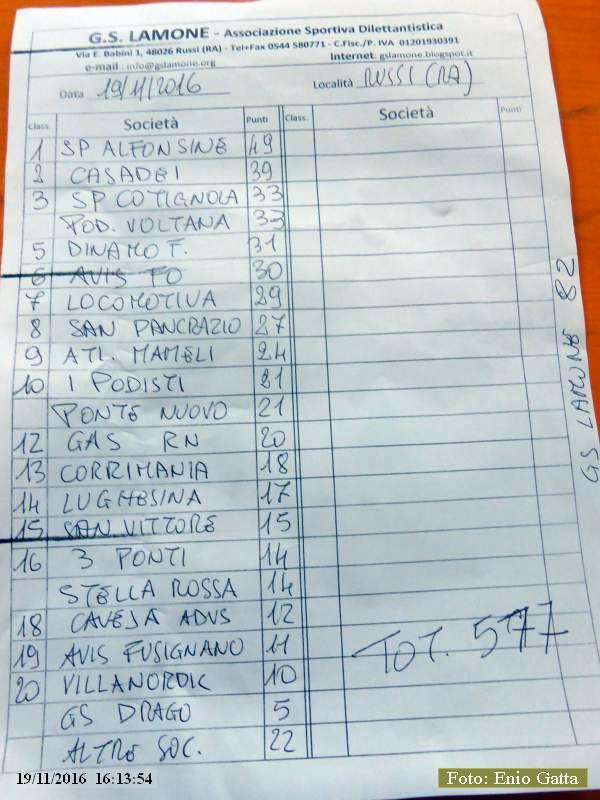 G.S. LAMONE - Associazione Sportiva Dilettantistica
Via E. Babini 1, 48026 Russi (RA) - Tel+Fax 0544 580771 - C.Fisc./P. IVA 01201930391
e-mail : info@gslamone.org Internet: gslamone.blogspot.it
Data 19/11/2016 Località RUSSI (RA)
Class. Società Punti Class. Società Punti
1 SP ALFONSINE 49
2 CASADEI 39
3 SP COTIGNOLA 33
POD. VOLTANA 33
5 DINAMO F. 31
6 AVIS FO 30
7 LOCOMOTIVA 29
8 SAN PANCRAZIO 27
9 ATL. MAMELI 24
10 I PODISTI 21
PONTE NUOVO 21
12 GAS RN 20
13 CORRIMANIA 18
14 LUGHESINA 17
15 SAN VITTORE 15
16 3 PONTI 14
STELLA ROSSA 14
18 CAVEJA ADVS 12
19 AVIS FUSIGNANO 11
20 VILLANORDIC 10
GS DRAGO 5
ALTRE SOC. 22
TOT. 577
GS LAMONE 82
19/11/2016 16:13:54
Foto: Enio Gatta